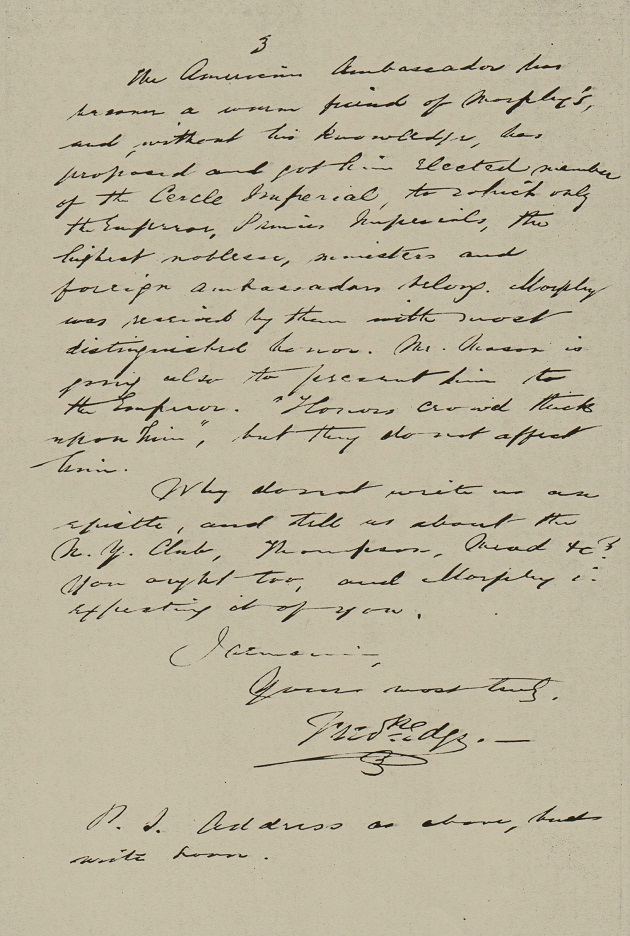 3
The American Ambassador has
become a warm friend of Morphy's,
and, without his knowledge, has
proposed and got him elected member
of the Cercle Imperial, to which only
the Emperor, Princes Imperials, the
highest noblesse, ministers and
foreign ambassadors belong. Morphy
was received by them with most
distinguished honor. Mr. Mason is
going also to present him to
the Emperor. "Honors crowd thick
upon him", but they do not affect
him.
Why do not write us an
epistle, and tell us about the
N. Y. Club, Thompson, Mead &c?
You ought too, and Morphy is
expecting it of you.
I remain,
Yours most truly,
Fredke Edge.
P. S. Address as above, but
write soon.